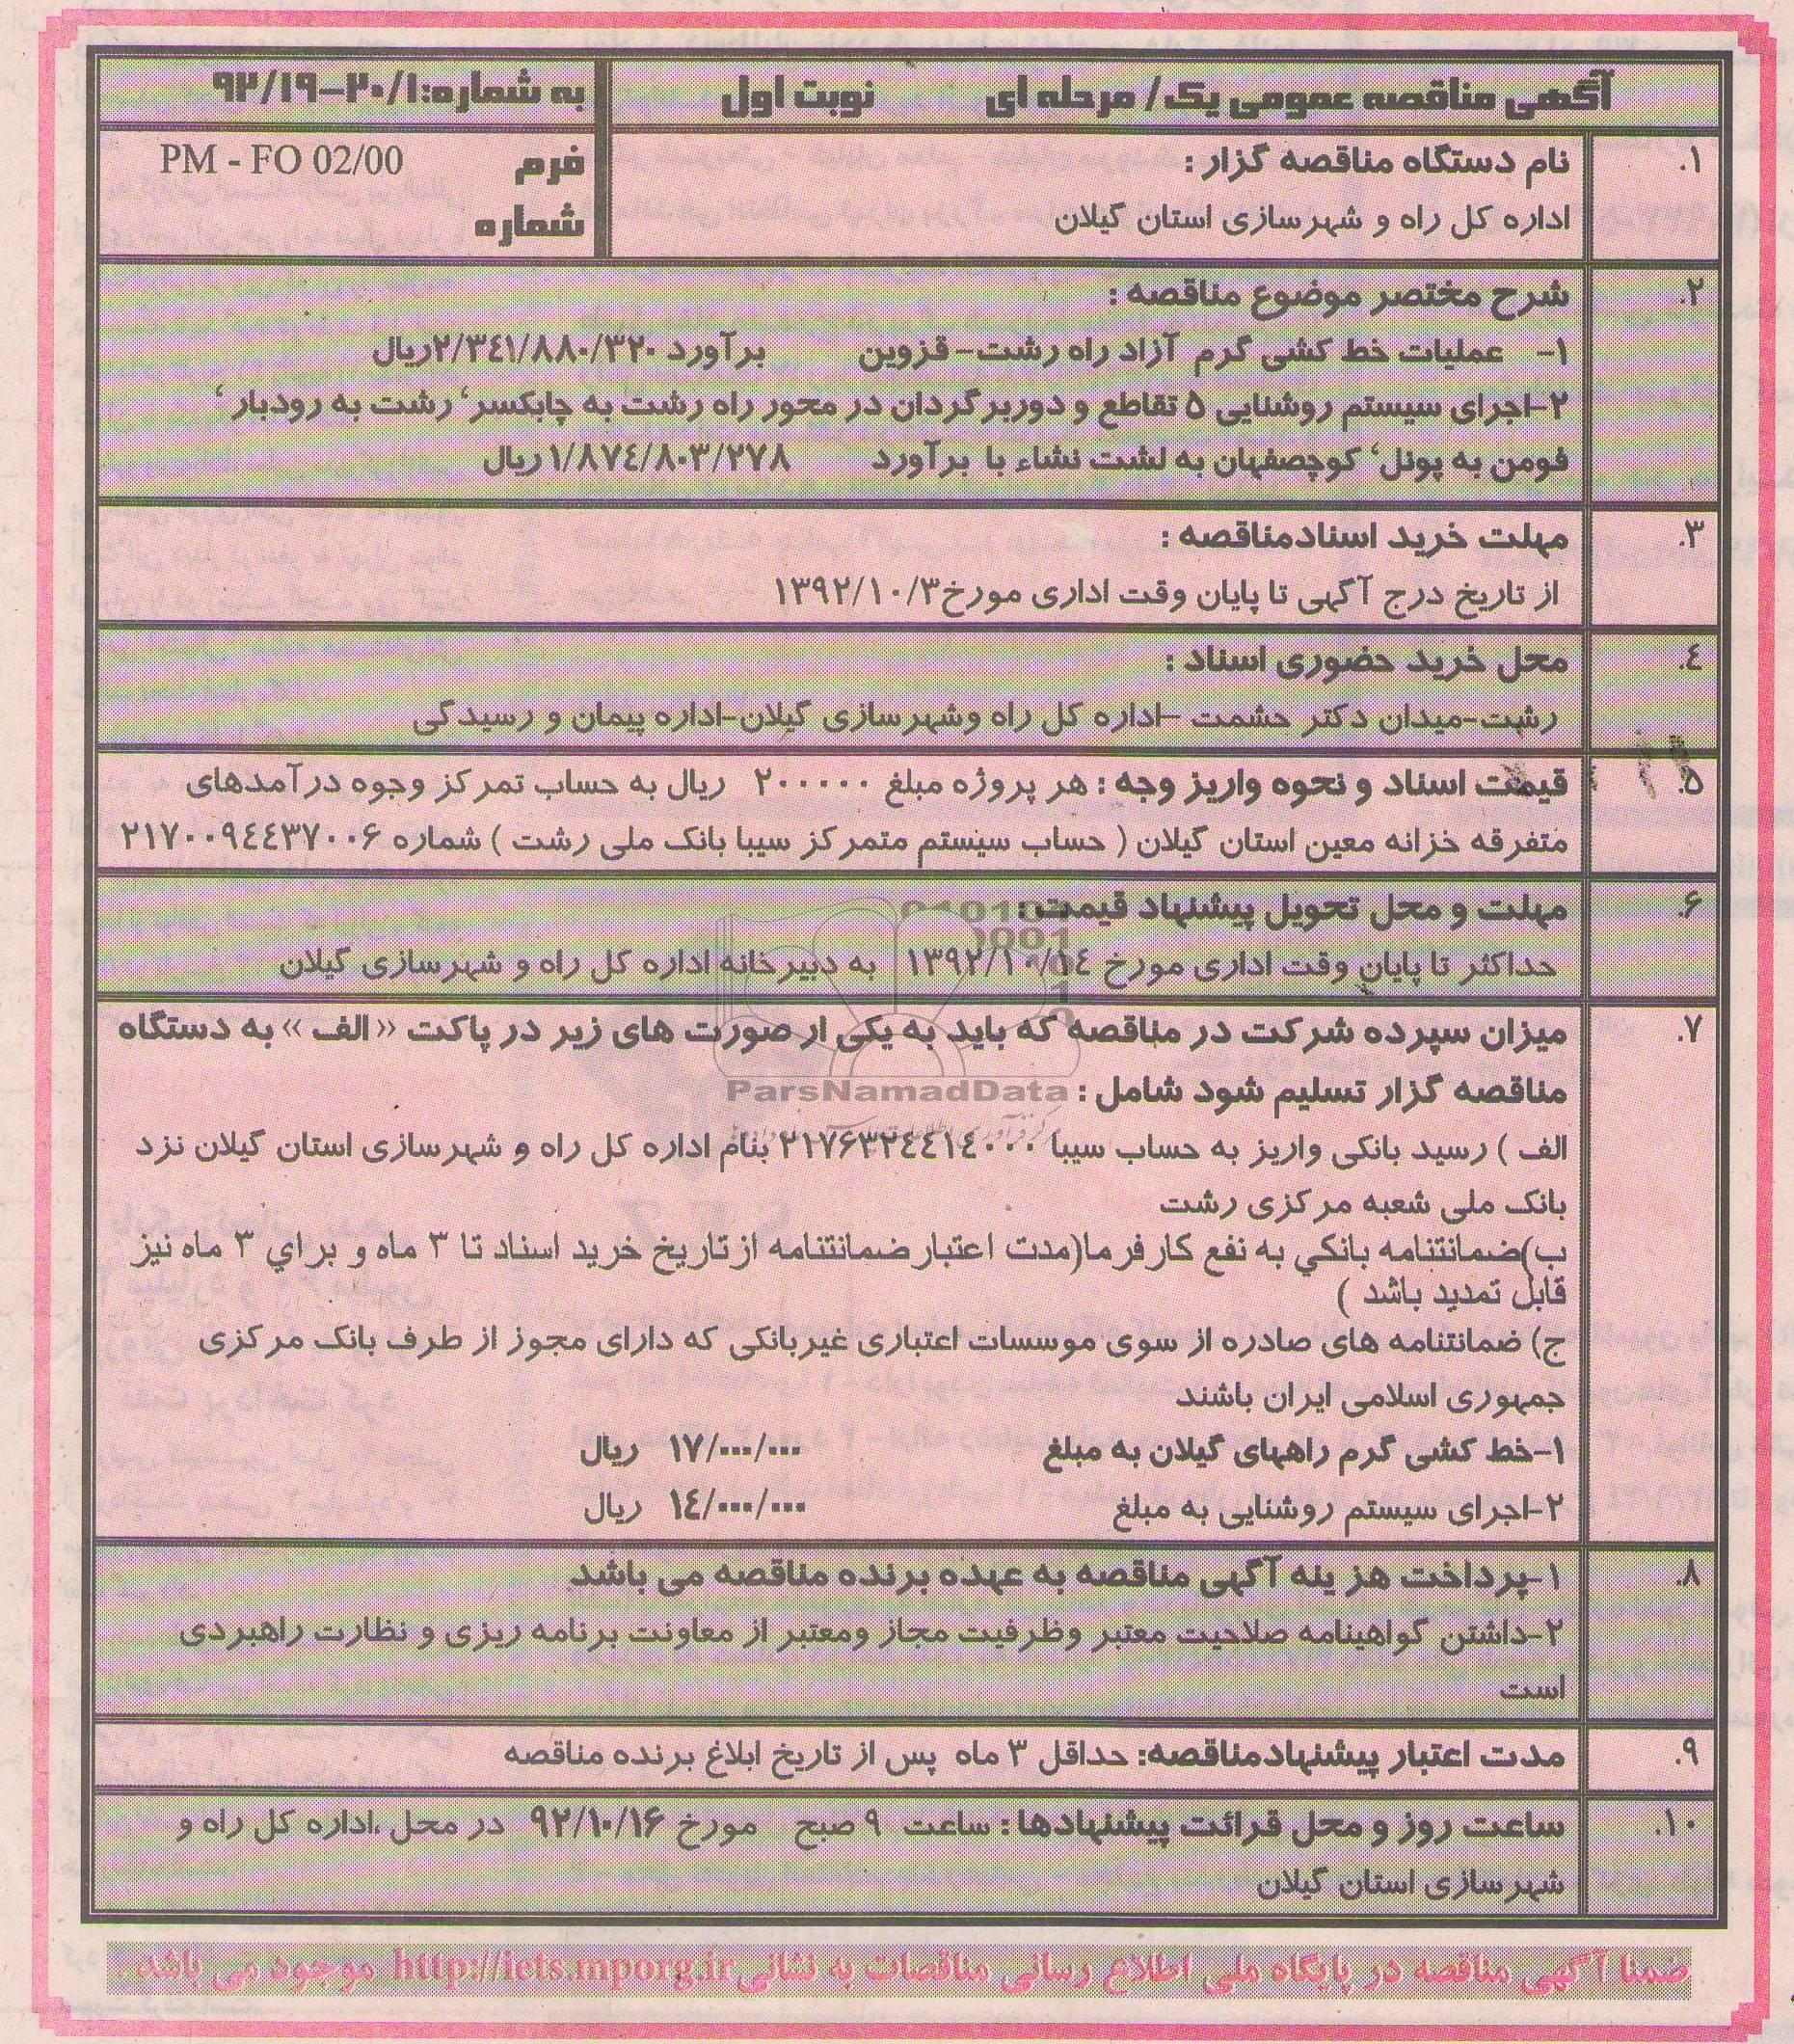 آگهی مناقصه عمومی یک/ مرحله ای نوبت اول
به شماره: ۲۰/۱-۹۲/۱۹
۱. نام دستگاه مناقصه گزار :
اداره کل راه و شهرسازی استان گیلان
فرم PM - FO 02/00
شماره
۲. شرح مختصر موضوع مناقصه :
۱- عملیات خط کشی گرم آزاد راه رشت- قزوین برآورد ۲/۳۴۱/۸۸۰/۳۲۰ریال
۲-اجرای سیستم روشنایی ۵ تقاطع و دوربرگردان در محور راه رشت به چابکسر، رشت به رودبار ،
فومن به پونل، کوچصفهان به لشت نشاء با برآورد ۱/۸۷۴/۸۰۳/۲۷۸ ریال
۳. مهلت خرید اسنادمناقصه :
از تاریخ درج آگهی تا پایان وقت اداری مورخ۱۳۹۲/۱۰/۳
۴. محل خرید حضوری اسناد :
رشت-میدان دکتر حشمت -اداره کل راه وشهرسازی گیلان-اداره پیمان و رسیدگی
۵. قیمت اسناد و نحوه واریز وجه : هر پروژه مبلغ ۲۰۰۰۰۰ ریال به حساب تمرکز وجوه درآمدهای
متفرقه خزانه معین استان گیلان ( حساب سیستم متمرکز سیبا بانک ملی رشت ) شماره ۲۱۷۰۰۹۴۴۳۷۰۰۶
۶. مهلت و محل تحویل پیشنهاد قیمت :
حداکثر تا پایان وقت اداری مورخ ۱۳۹۲/۱۰/۱۴ به دبیرخانه اداره کل راه و شهرسازی گیلان
۷. میزان سپرده شرکت در مناقصه که باید به یکی از صورت های زیر در پاکت «الف» به دستگاه
مناقصه گزار تسلیم شود شامل :
ParsNamadData
الف ) رسید بانکی واریز به حساب سیبا ۲۱۷۶۳۲۴۴۱۴۰۰۰ بنام اداره کل راه و شهرسازی استان گیلان نزد
بانک ملی شعبه مرکزی رشت
ب)ضمانتنامه بانکي به نفع کارفرما(مدت اعتبارضمانتنامه ازتاریخ خرید اسناد تا ۳ ماه و براي ۳ ماه نیز
قابل تمدید باشد )
ج) ضمانتنامه های صادره از سوی موسسات اعتباری غیربانکی که دارای مجوز از طرف بانک مرکزی
جمهوری اسلامی ایران باشند
۱-خط کشی گرم راههای گیلان به مبلغ ۱۷/۰۰۰/۰۰۰ ریال
۲-اجرای سیستم روشنایی به مبلغ ۱۴/۰۰۰/۰۰۰ ریال
۸. ۱-پرداخت هزینه آگهی مناقصه به عهده برنده مناقصه می باشد
۲-داشتن گواهینامه صلاحیت معتبر وظرفیت مجاز ومعتبر از معاونت برنامه ریزی و نظارت راهبردی
است
۹. مدت اعتبار پیشنهادمناقصه: حداقل ۳ ماه پس از تاریخ ابلاغ برنده مناقصه
۱۰. ساعت روز و محل قرائت پیشنهادها : ساعت ۹ صبح مورخ ۹۲/۱۰/۱۶ در محل ،اداره کل راه و
شهرسازی استان گیلان
ضمنا آگهی مناقصه در پایگاه ملی اطلاع رسانی مناقصات به نشانی http://iets.mporg.ir موجود می باشد .